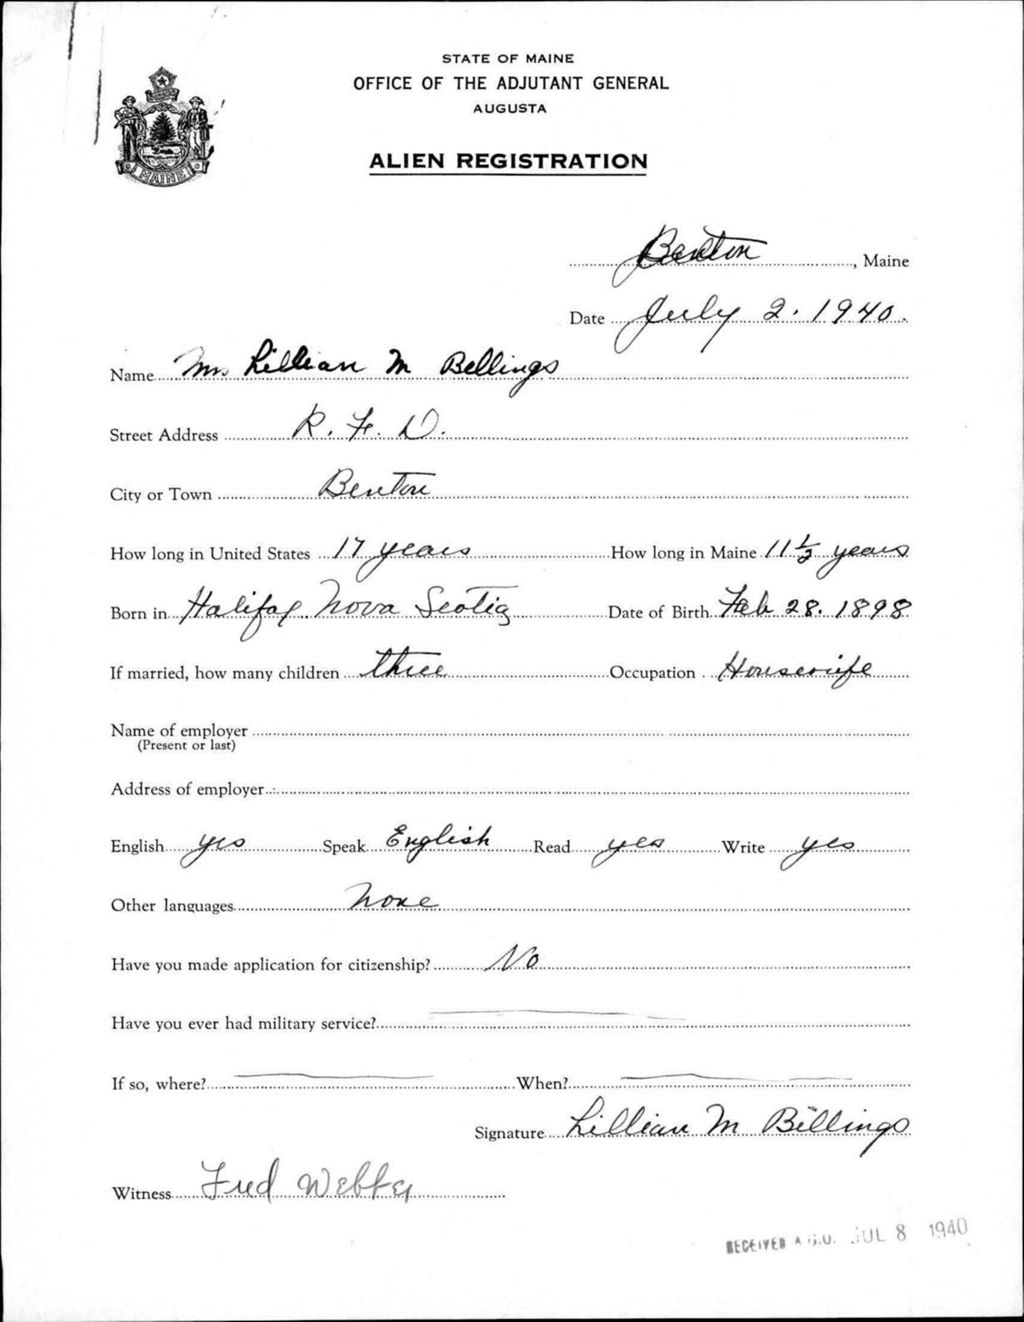 STATE OF MAINE
OFFICE OF THE ADJUTANT GENERAL
AUGUSTA
ALIEN REGISTRATION
MAINE
Benton, Maine
Date July 2. 1940.
Name Mrs Lillian M Billings
Street Address R. F. D.
City or Town Benton
How long in United States 17 years How long in Maine 11 1/2 years
Born in Halifax Nova Scotia Date of Birth Feb 28. 1898
If married, how many children three Occupation Housewife
Name of employer
(Present or last)
Address of employer
English yes Speak English Read yes Write yes
Other languages None
Have you made application for citizenship? No
Have you ever had military service?
If so, where? When?
Signature Lillian M Billings
Witness Fred Webber
RECEIVED A.G.O. JUL 8 1940